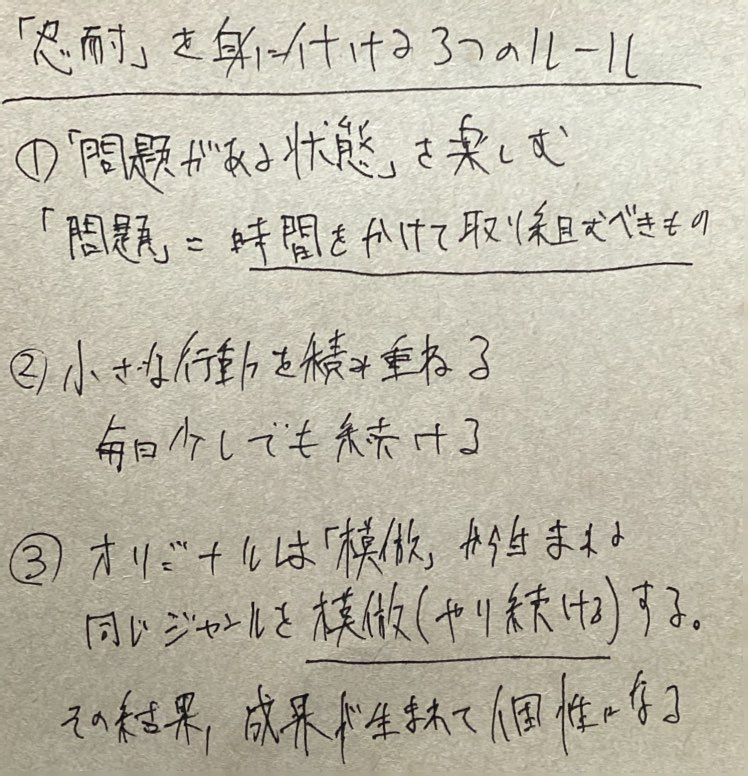 「忍耐」を身に付ける3つのルール
①「問題がある状態」を楽しむ
「問題」=時間をかけて取り組むべきもの
②小さな行動を積み重ねる
毎日少しでも続ける
③オリジナルは「模倣」から生まれる
同じジャンルを模倣(やり続ける)する。
その結果,成果が生まれて個性になる